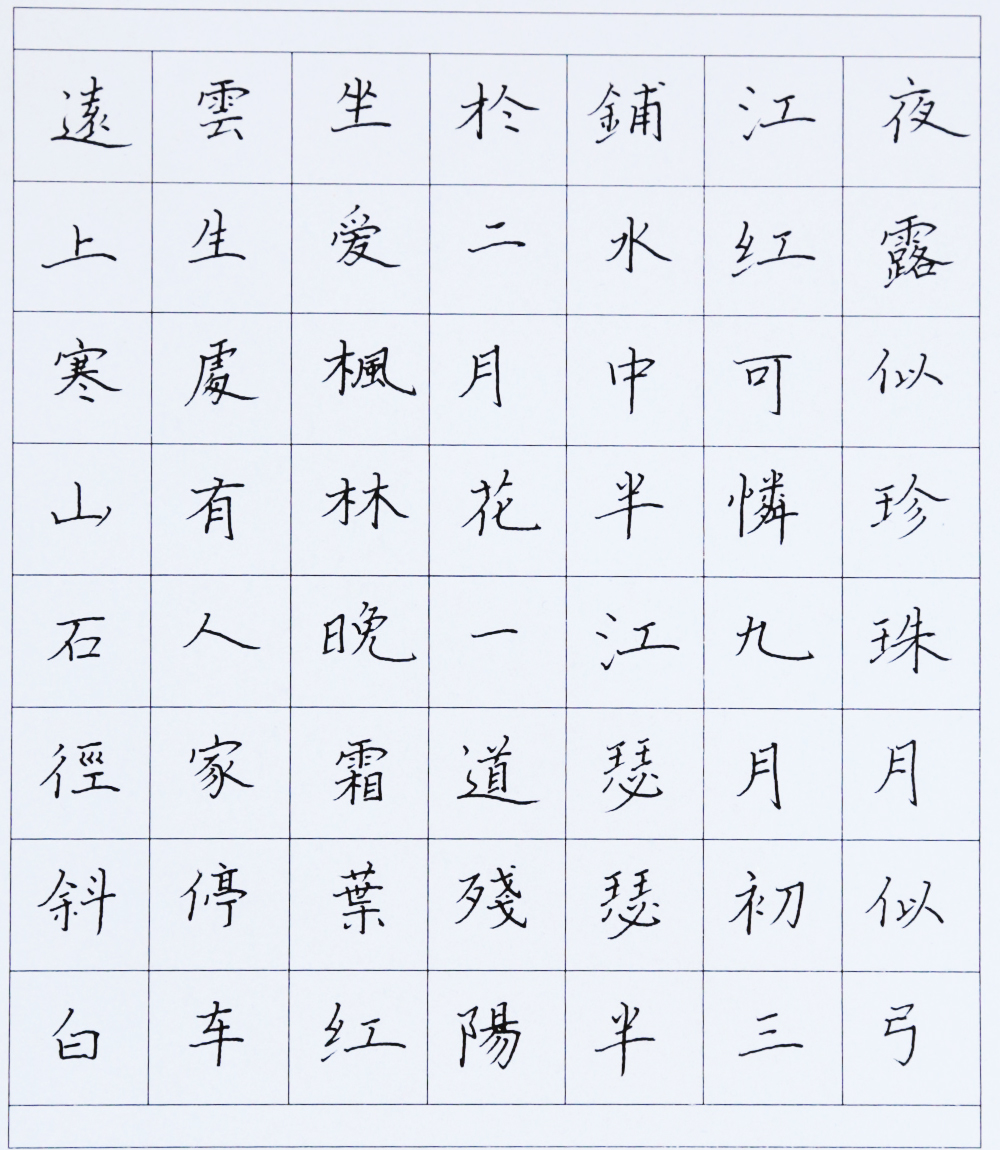 遠上寒山石徑斜白
雲生處有人家停车
坐爱楓林晚霜葉紅
於二月花一道殘陽
鋪水中半江瑟瑟半
江紅可憐九月初三
夜露似珍珠月似弓